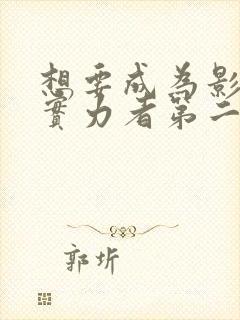 想要成為影
實力者第二
郭圻